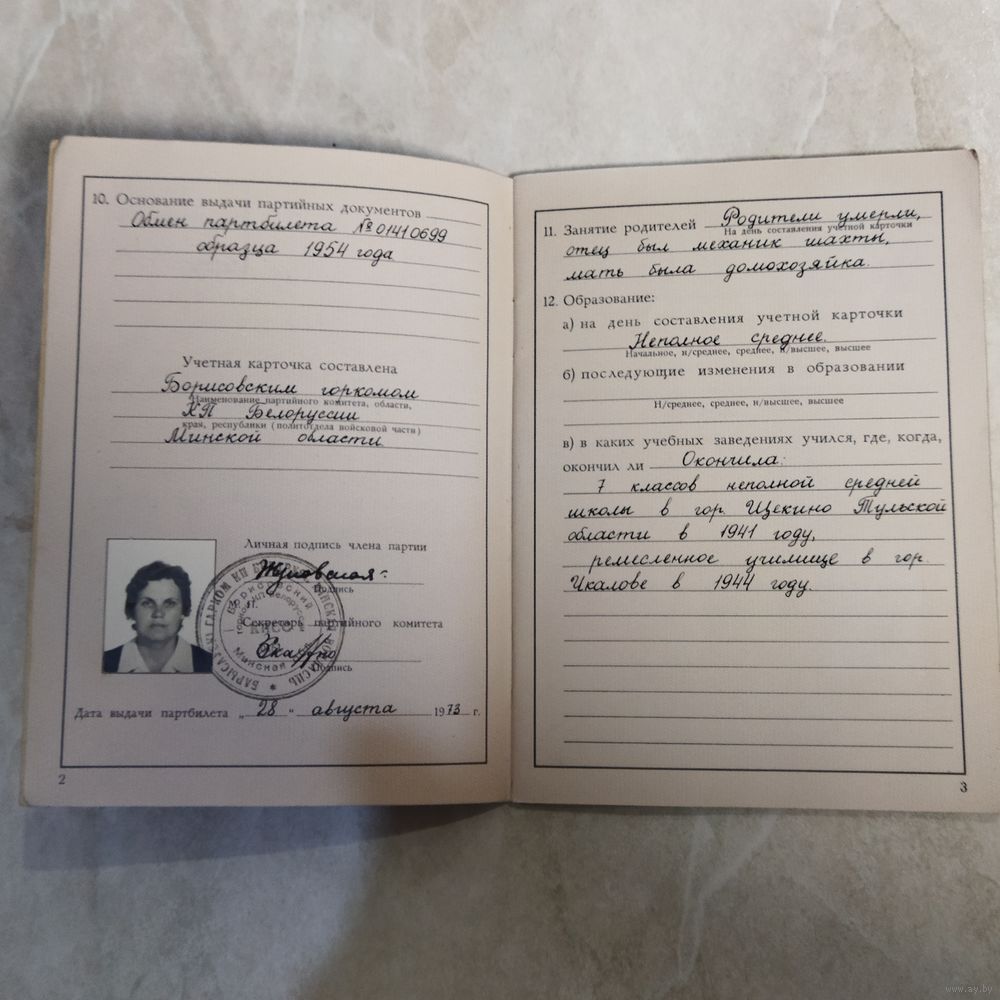 10. Основание выдачи партийных документов
Обмен партбилета № 01410699
образца 1954 года
Учетная карточка составлена
Борисовским горкомом
Наименование партийного комитета, области,
КП Белоруссии
края, республики (политотдела войсковой части)
Минской области
Личная подпись члена партии
Подпись
М. П.
Секретарь партийного комитета
Подпись
Дата выдачи партбилета „28“ августа 1973 г.
2
11. Занятие родителей Родители умерли,
На день составления учетной карточки
отец был механик шахты,
мать была домохозяйка.
12. Образование:
а) на день составления учетной карточки
Неполное среднее.
Начальное, н/среднее, среднее, н/высшее, высшее
б) последующие изменения в образовании
Н/среднее, среднее, н/высшее, высшее
в) в каких учебных заведениях учился, где, когда,
окончил ли Окончила:
7 классов неполной средней
школы в гор. Щекино Тульской
области в 1941 году,
ремесленное училище в гор.
Чкалове в 1944 году.
3
www.ay.by